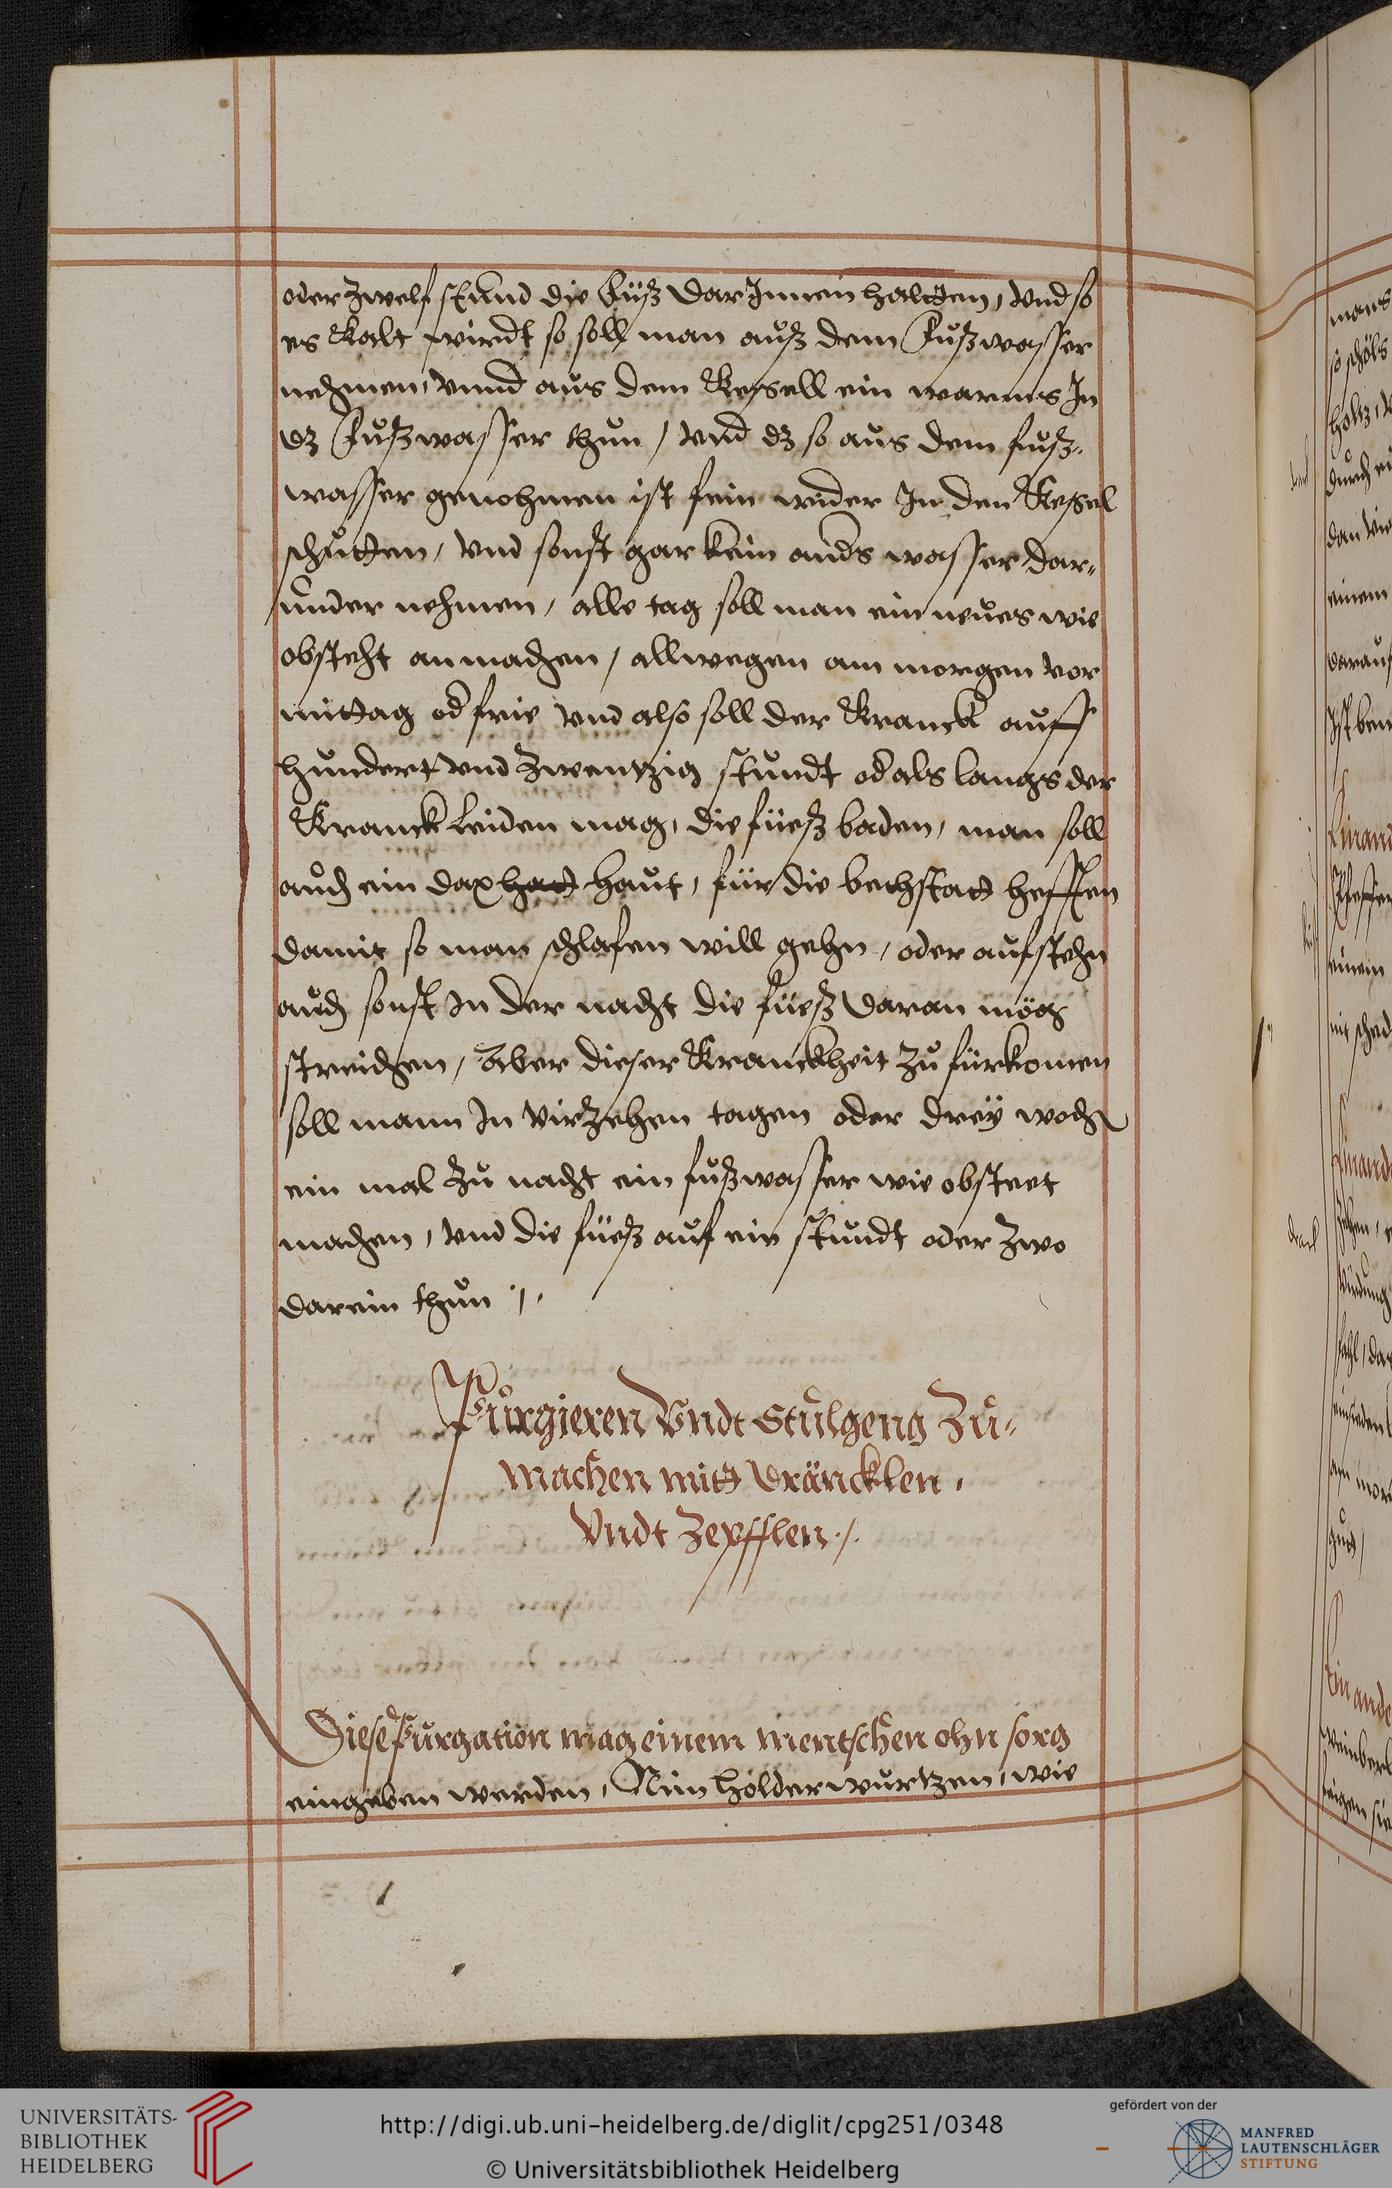 oder zwelf stund die Füß dar Innen haltten, vnd so
es kalt wirdt so soll man auß dem Fußwasser
nehmen, vnnd aus dem Kessell ein warmes In
dz Fußwasser thun, vnd dz so aus dem fuß-
wasser genohmen ist fein wider In den Kessel
schütten, vnd sonst gar kein anders wasser dar-
under nehmen, alle tag soll man ein neues wie
obsteht anmachen, allwegen am morgen vor
mittag od frie vnd also soll der Kranck auff
hundert vnd zwentzig stundt od als langs der
Kranck leiden mag, die füeß baden, man soll
auch ein dax hatt haut, für die bethstatt hefften
damit so man schlafen will gehn, oder aufstehn
auch sonst In der nacht die füeß daran mög
streichen, Aber dieser Kranckheit zu fürkomen
soll mann In virzehen tagen oder dreÿ woch
ein mal zu nacht ein fußwasser wie obsteet
machen, vnd die füeß auf ein stundt oder zwo
darein thun ·/·
Purgieren Vndt Stulgeng Zu-
machen mitt dräncklen,
Vndt Zepfflen ·/·
Diese Purgation mag einem mentschen ohn sorg
eingeben werden, Nim holder wurtzen, wie
mans
so schöls
holtz,
durch
dan
einem
darauf
Ist
einem
UNIVERSITÄTS-
BIBLIOTHEK
HEIDELBERG
http://digi.ub.uni-heidelberg.de/diglit/cpg251/0348
© Universitätsbibliothek Heidelberg
gefördert von der
MANFRED
LAUTENSCHLÄGER
STIFTUNG